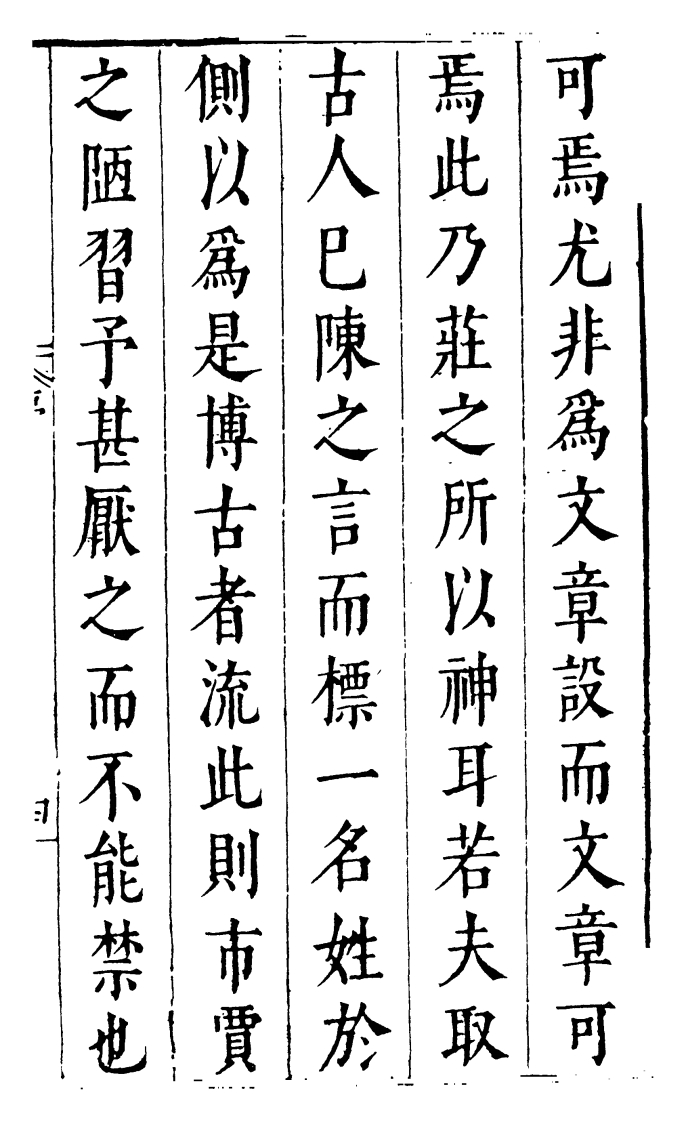 可焉尤非爲文章設而文章可
焉此乃莊之所以神耳若夫取
古人巳陳之言而標一名姓於
側以爲是博古者流此則市賈
之陋習予甚厭之而不能禁也